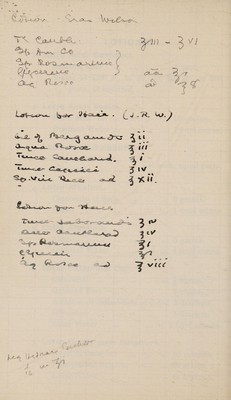 Lotion
Tr Canth. ʒiii - ʒvi
Sp Am Co
Sp Rosmarini
Glycerine aa ʒi
Aq Rosae ad ℥8
Lotion for Hair. (J. R. W.)
Oil of Bergamot ʒii
Aqua Rosae ℥iii
Tinct Canthard. ℥i
Tinct Capsici ʒiv
Sp. Vini Rect ad ℥xii.
Lotion for Hair
Tinct Jaborandi ʒiv
Tinct Canthard ʒiv
Sp. Rosmarini ℥i
Glycerin
Aq Rosae ad ℥viii